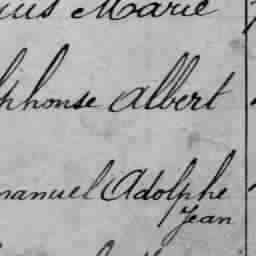 Marie
Alphonse Albert
manuel Adolphe
Jean